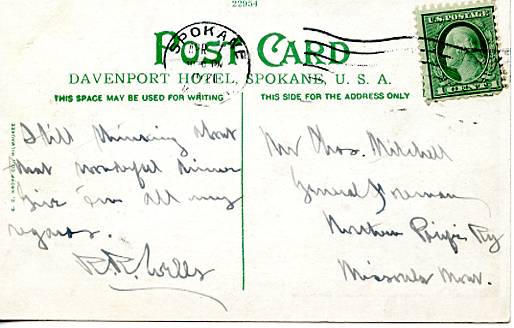 22954
SPOKANE
POST CARD
DAVENPORT HOTEL, SPOKANE, U. S. A.
THIS SPACE MAY BE USED FOR WRITING
THIS SIDE FOR THE ADDRESS ONLY
U.S. POSTAGE
1 CENT 1
Still thinking about
that wonderful dinner
Give 'em all my
regards.
R.R. Wells
Mr Thos. Mitchell
General Foreman
Northern Pacific Ry
Missoula Mont.